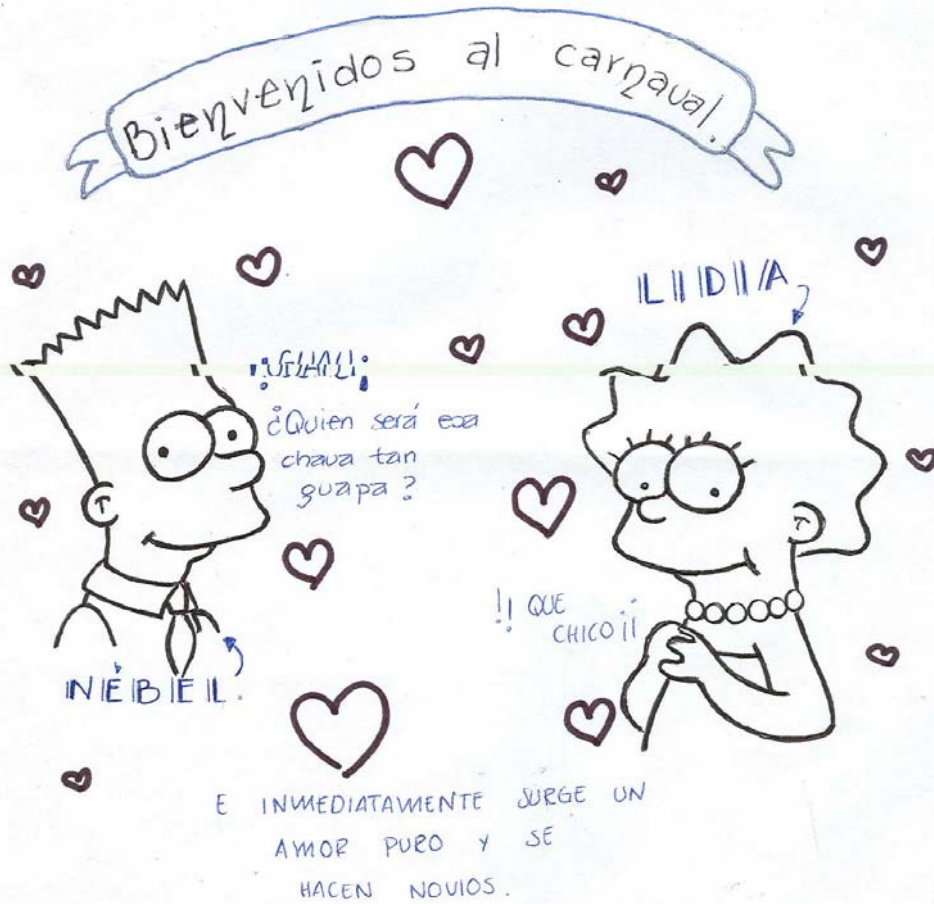 Bienvenidos al carnaval.
LIDIA
¡GUAU¡
¿Quien será esa
chava tan
guapa?
!! QUE
CHICO ¡¡
NÉBEL.
E INMEDIATAMENTE SURGE UN
AMOR PURO Y SE
HACEN NOVIOS.